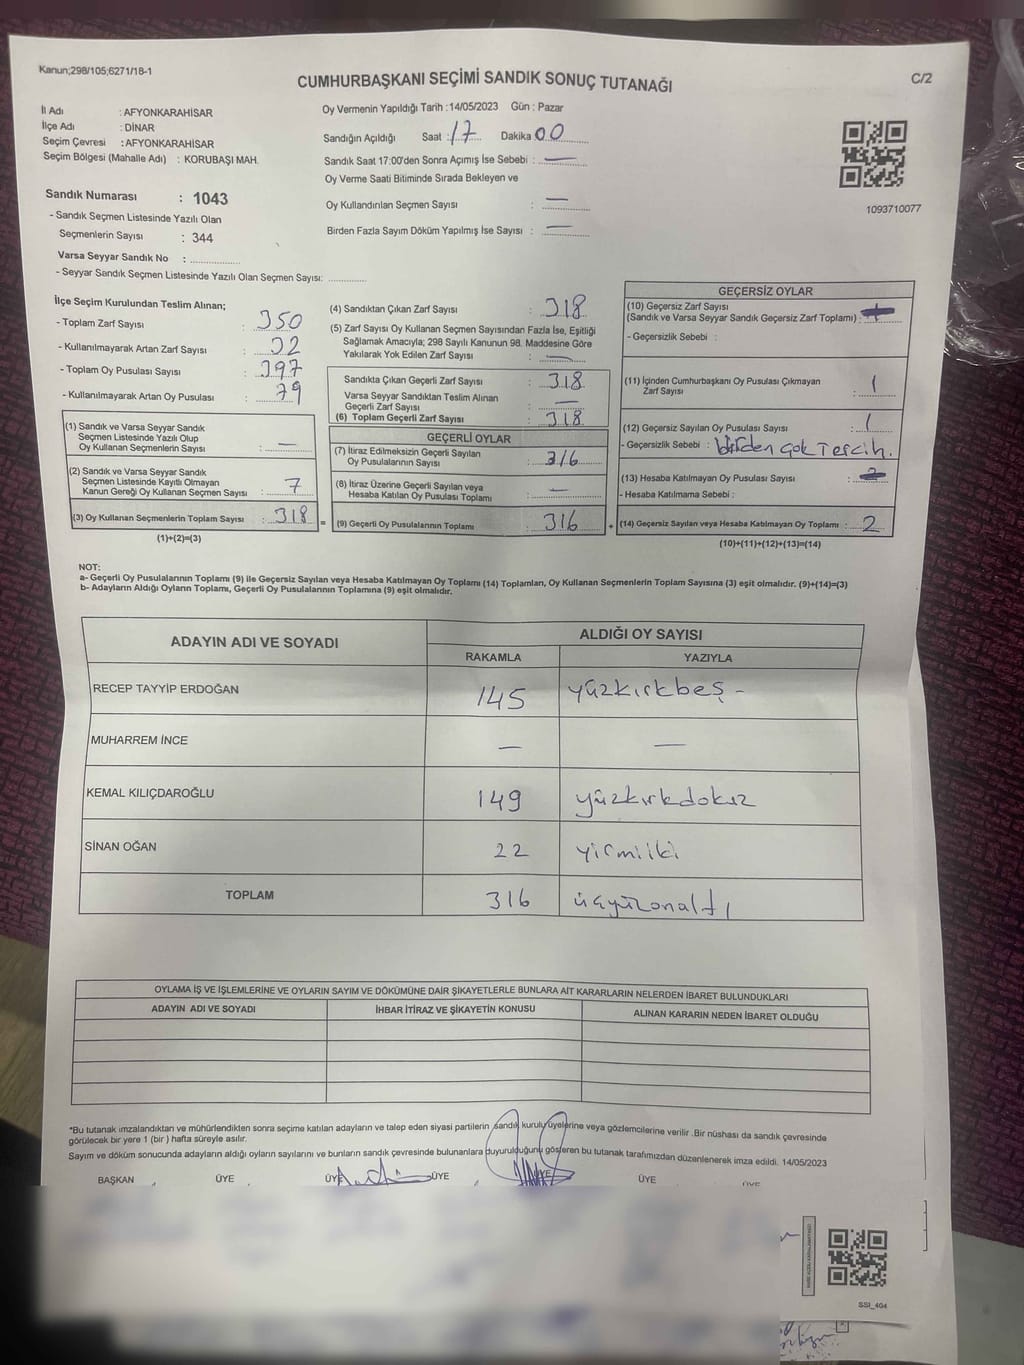 Kanun;298/105;6271/18-1
C/2
CUMHURBAŞKANI SEÇİMİ SANDIK SONUÇ TUTANAĞI
İl Adı : AFYONKARAHİSAR
İlçe Adı : DİNAR
Seçim Çevresi : AFYONKARAHİSAR
Seçim Bölgesi (Mahalle Adı) : KORUBAŞI MAH.
Oy Vermenin Yapıldığı Tarih :14/05/2023 Gün : Pazar
Sandığın Açıldığı Saat : 17 Dakika 00
Sandık Saat 17:00'den Sonra Açımış İse Sebebi : —
Oy Verme Saati Bitiminde Sırada Bekleyen ve
Oy Kullandırılan Seçmen Sayısı : —
Birden Fazla Sayım Döküm Yapılmış İse Sayısı : —
1093710077
Sandık Numarası : 1043
- Sandık Seçmen Listesinde Yazılı Olan
Seçmenlerin Sayısı : 344
Varsa Seyyar Sandık No :
- Seyyar Sandık Seçmen Listesinde Yazılı Olan Seçmen Sayısı:
İlçe Seçim Kurulundan Teslim Alınan;
- Toplam Zarf Sayısı : 350
- Kullanılmayarak Artan Zarf Sayısı : 32
- Toplam Oy Pusulası Sayısı : 397
- Kullanılmayarak Artan Oy Pusulası : 79
(1) Sandık ve Varsa Seyyar Sandık
Seçmen Listesinde Yazılı Olup
Oy Kullanan Seçmenlerin Sayısı : —
(2) Sandık ve Varsa Seyyar Sandık
Seçmen Listesinde Kayıtlı Olmayan
Kanun Gereği Oy Kullanan Seçmen Sayısı : 7
(3) Oy Kullanan Seçmenlerin Toplam Sayısı : 318 =
(1)+(2)=(3)
(4) Sandıktan Çıkan Zarf Sayısı : 318
(5) Zarf Sayısı Oy Kullanan Seçmen Sayısından Fazla İse, Eşitliği
Sağlamak Amacıyla; 298 Sayılı Kanunun 98. Maddesine Göre
Yakılarak Yok Edilen Zarf Sayısı : —
Sandıkta Çıkan Geçerli Zarf Sayısı : 318
Varsa Seyyar Sandıktan Teslim Alınan
Geçerli Zarf Sayısı : —
(6) Toplam Geçerli Zarf Sayısı : 318
GEÇERLİ OYLAR
(7) İtiraz Edilmeksizin Geçerli Sayılan
Oy Pusulalarının Sayısı : 316
(8) İtiraz Üzerine Geçerli Sayılan veya
Hesaba Katılan Oy Pusulası Toplamı : —
(9) Geçerli Oy Pusulalarının Toplamı : 316 +
GEÇERSİZ OYLAR
(10) Geçersiz Zarf Sayısı
(Sandık ve Varsa Seyyar Sandık Geçersiz Zarf Toplamı) :
- Geçersizlik Sebebi :
(11) İçinden Cumhurbaşkanı Oy Pusulası Çıkmayan
Zarf Sayısı : 1
(12) Geçersiz Sayılan Oy Pusulası Sayısı : 1
- Geçersizlik Sebebi : birden çok Tercih.
(13) Hesaba Katılmayan Oy Pusulası Sayısı :
- Hesaba Katılmama Sebebi :
(14) Geçersiz Sayılan veya Hesaba Katılmayan Oy Toplamı : 2
(10)+(11)+(12)+(13)=(14)
NOT:
a- Geçerli Oy Pusulalarının Toplamı (9) ile Geçersiz Sayılan veya Hesaba Katılmayan Oy Toplamı (14) Toplamları, Oy Kullanan Seçmenlerin Toplam Sayısına (3) eşit olmalıdır. (9)+(14)=(3)
b- Adayların Aldığı Oyların Toplamı, Geçerli Oy Pusulalarının Toplamına (9) eşit olmalıdır.
ADAYIN ADI VE SOYADI
ALDIĞI OY SAYISI
RAKAMLA YAZIYLA
RECEP TAYYİP ERDOĞAN 145 yüzkırkbeş -
MUHARREM İNCE — —
KEMAL KILIÇDAROĞLU 149 yüzkırkdokuz
SİNAN OĞAN 22 yirmiiki
TOPLAM 316 üçyüzonaltı
OYLAMA İŞ VE İŞLEMLERİNE VE OYLARIN SAYIM VE DÖKÜMÜNE DAİR ŞİKAYETLERLE BUNLARA AİT KARARLARIN NELERDEN İBARET BULUNDUKLARI
ADAYIN ADI VE SOYADI İHBAR İTİRAZ VE ŞİKAYETİN KONUSU ALINAN KARARIN NEDEN İBARET OLDUĞU
*Bu tutanak imzalandıktan ve mühürlendikten sonra seçime katılan adayların ve talep eden siyasi partilerin sandık kurulu üyelerine veya gözlemcilerine verilir .Bir nüshası da sandık çevresinde
görülecek bir yere 1 (bir ) hafta süreyle asılır.
Sayım ve döküm sonucunda adayların aldığı oyların sayılarını ve bunların sandık çevresinde bulunanlara duyurulduğunu gösteren bu tutanak tarafımızdan düzenlenerek imza edildi. 14/05/2023
BAŞKAN ÜYE ÜYE ÜYE ÜYE ÜYE ÜYE
SSI_404